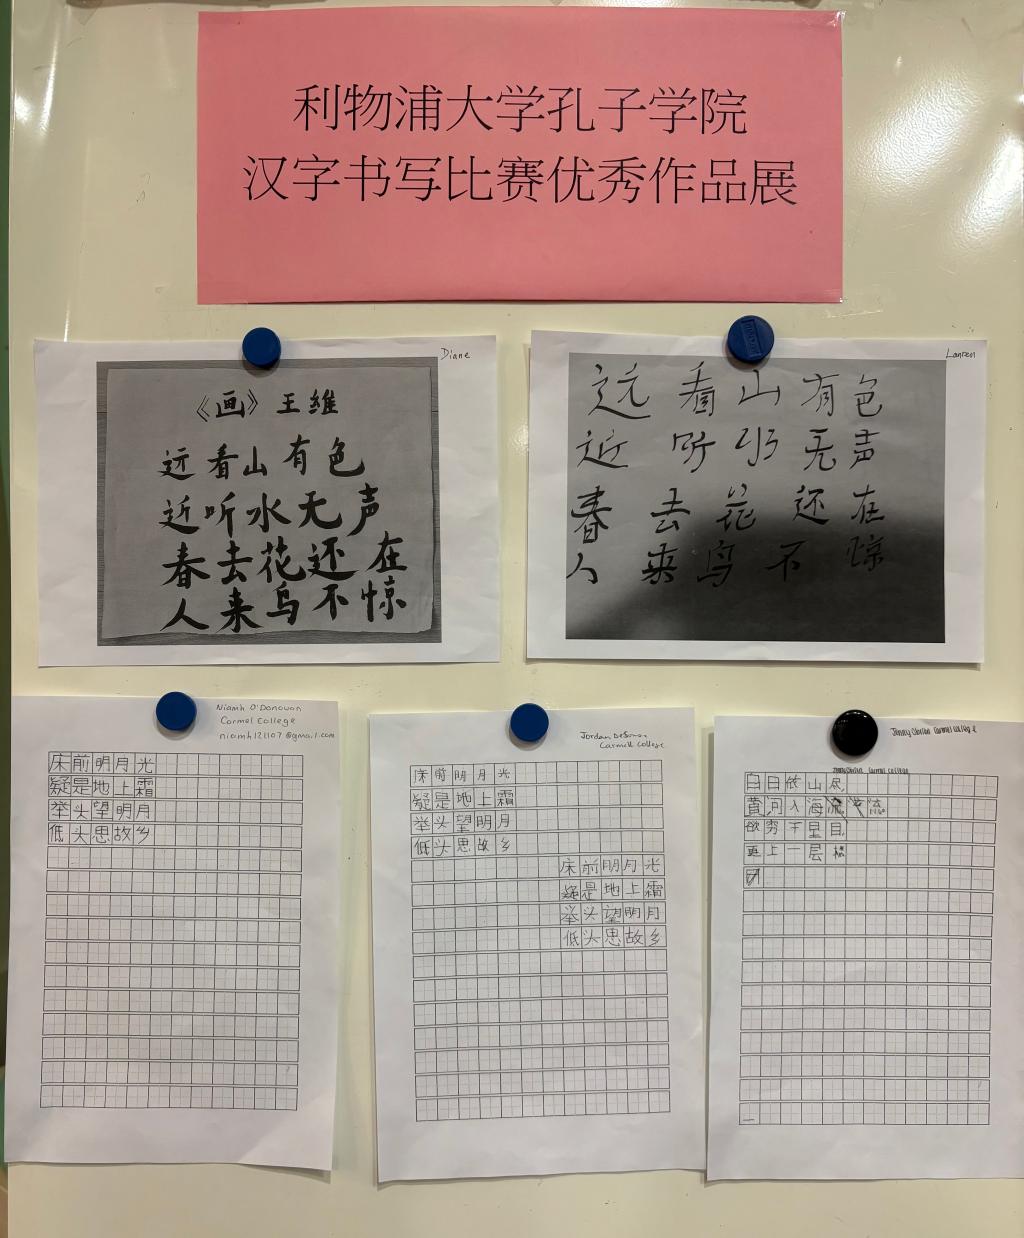 利物浦大学孔子学院
汉字书写比赛优秀作品展
Diane
《画》王维
远看山有色
近听水无声
春去花还在
人来鸟不惊
Lauren
远看山有色
近听水无声
春去花还在
人来鸟不惊
Niamh O'Donovan
Carmel College
niamh121107@gmail.com
床前明月光
疑是地上霜
举头望明月
低头思故乡
Jordan
Carmell College
床前明月光
疑是地上霜
举头望明月
低头思故乡
床前明月光
疑是地上霜
举头望明月
低头思故乡
Carmel College
Carmel College
白日依山尽
黄河入海流
欲穷千里目
更上一层楼